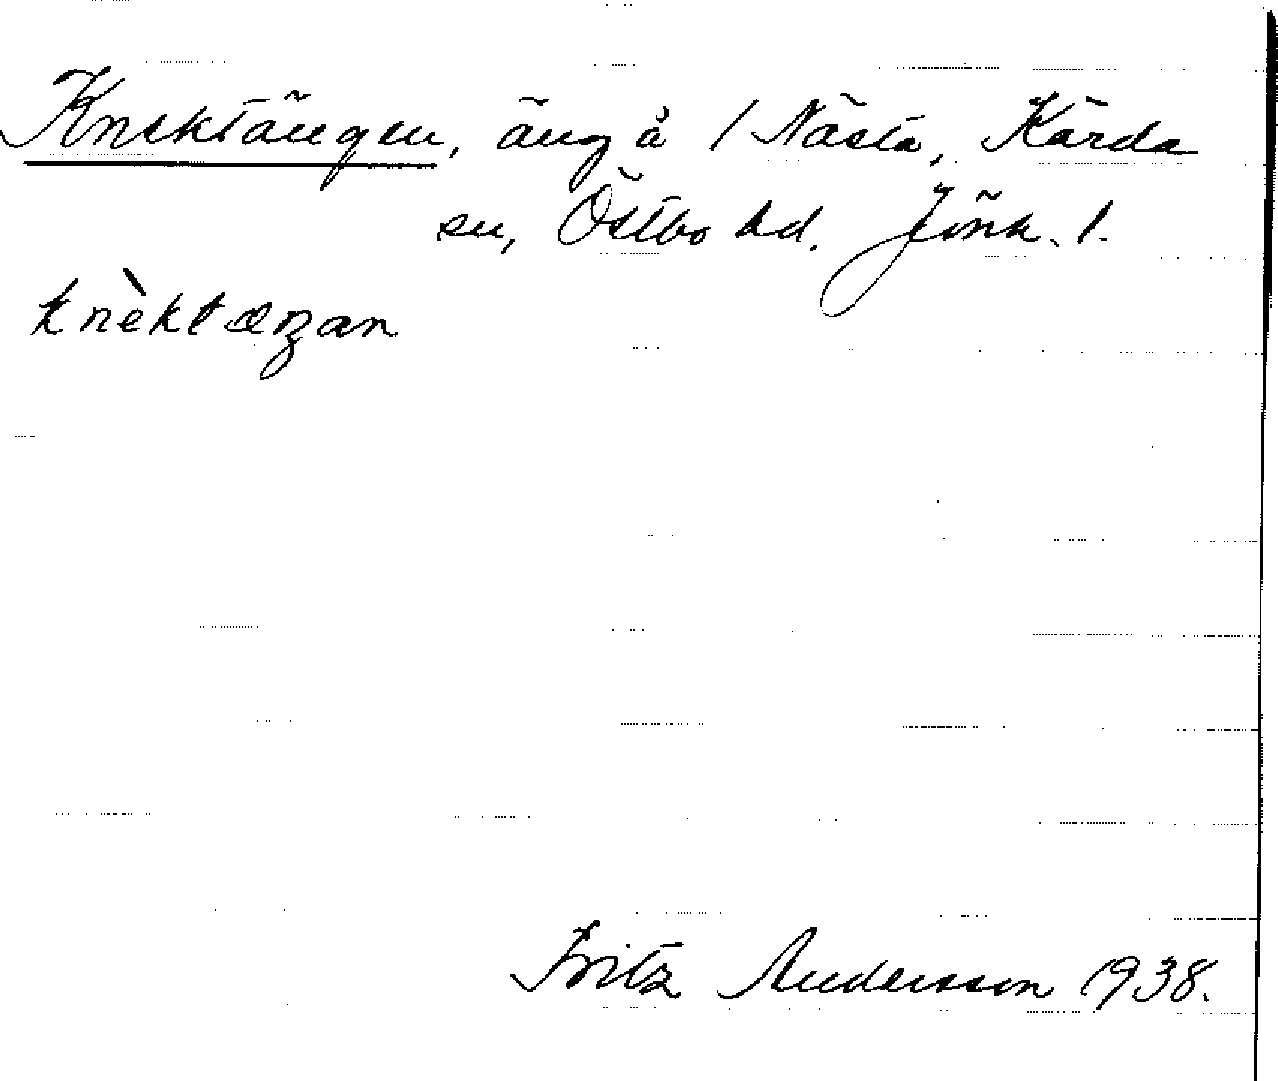 Knektängen, äng å 1 Nästa, Kärda
sn, Östbo hd. Jönk. l.
knèktæŋan
Fritz Andersson 1938.